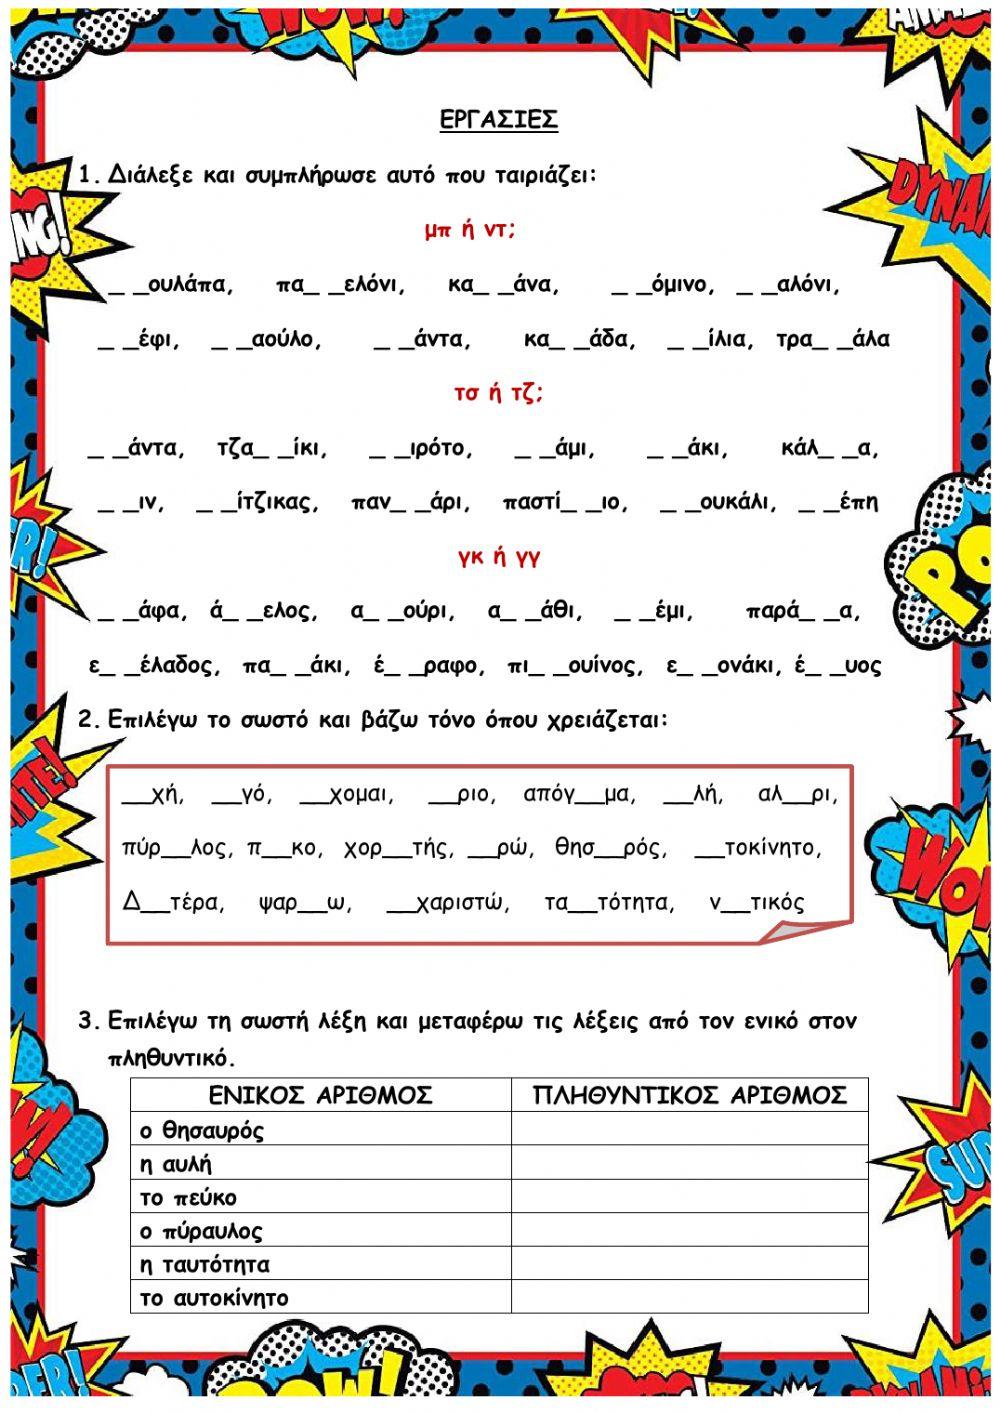 WOW!
ΕΡΓΑΣΙΕΣ
1. Διάλεξε και συμπλήρωσε αυτό που ταιριάζει:
μπ ή ντ;
_ _ουλάπα, πα_ _ελόνι, κα_ _άνα, _ _όμινο, _ _αλόνι,
_ _έφι, _ _αούλο, _ _άντα, κα_ _άδα, _ _ίλια, τρα_ _άλα
τσ ή τζ;
_ _άντα, τζα_ _ίκι, _ _ιρότο, _ _άμι, _ _άκι, κάλ_ _α,
_ _ιν, _ _ίτζικας, παν_ _άρι, παστί_ _ιο, _ _ουκάλι, _ _έπη
γκ ή γγ
_ _άφα, ά_ _ελος, α_ _ούρι, α_ _άθι, _ _έμι, παρά_ _α,
ε_ _έλαδος, πα_ _άκι, έ_ _ραφο, πι_ _ουίνος, ε_ _ονάκι, έ_ _υος
2. Επιλέγω το σωστό και βάζω τόνο όπου χρειάζεται:
__χή, __γό, __χομαι, __ριο, απόγ__μα, __λή, αλ__ρι,
πύρ__λος, π__κο, χορ__τής, __ρώ, θησ__ρός, __τοκίνητο,
Δ__τέρα, ψαρ__ω, __χαριστώ, τα__τότητα, ν__τικός
3. Επιλέγω τη σωστή λέξη και μεταφέρω τις λέξεις από τον ενικό στον
πληθυντικό.
ΕΝΙΚΟΣ ΑΡΙΘΜΟΣ ΠΛΗΘΥΝΤΙΚΟΣ ΑΡΙΘΜΟΣ
ο θησαυρός
η αυλή
το πεύκο
ο πύραυλος
η ταυτότητα
το αυτοκίνητο
POW!